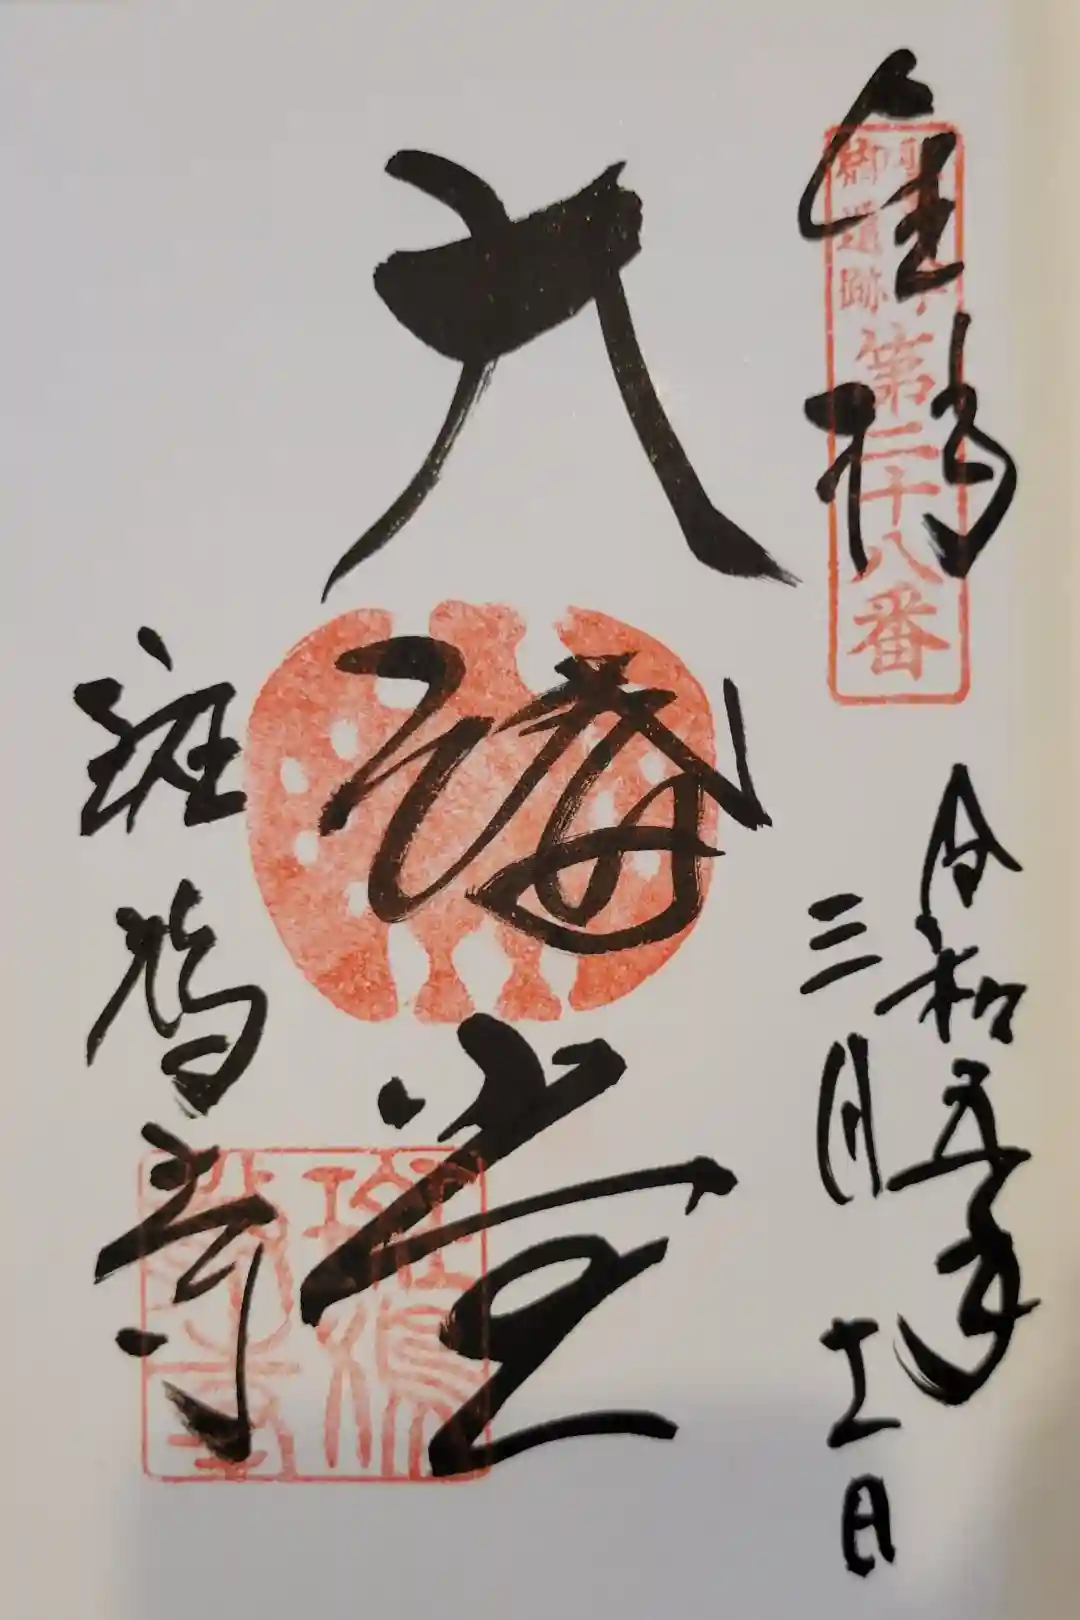 奉拝
聖徳太子
御遺跡
第二十八番
令和五年
三月十二日
大講堂
斑鳩寺